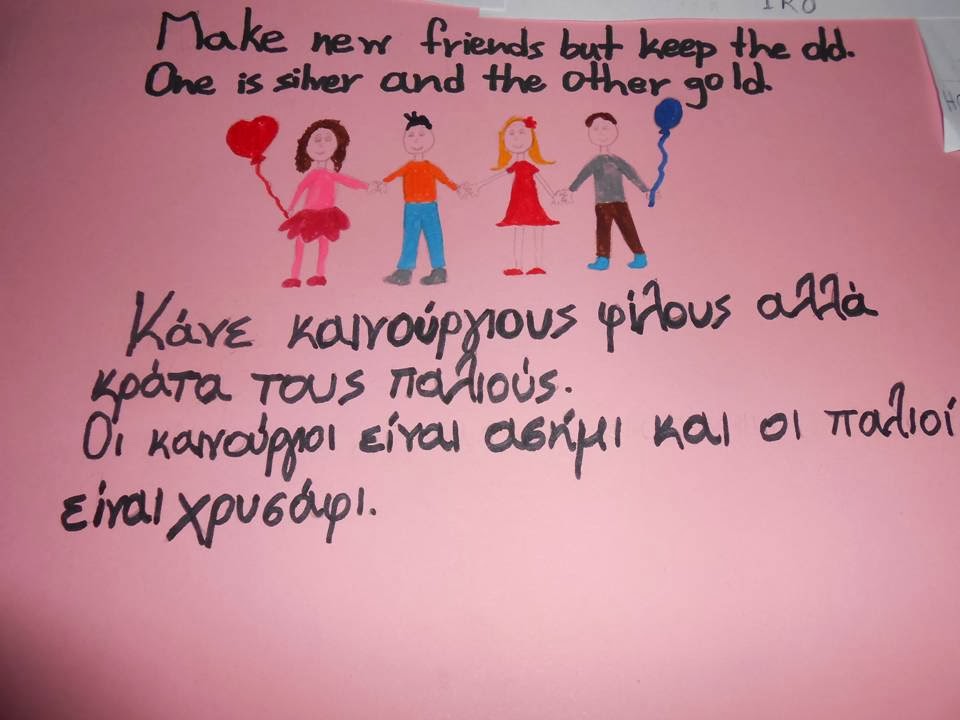 IRO
Make new friends but keep the old.
One is silver and the other gold.
Κάνε καινούργιους φίλους αλλά
κράτα τους παλιούς.
Οι καινούργιοι είναι ασήμι και οι παλιοί
είναι χρυσάφι.